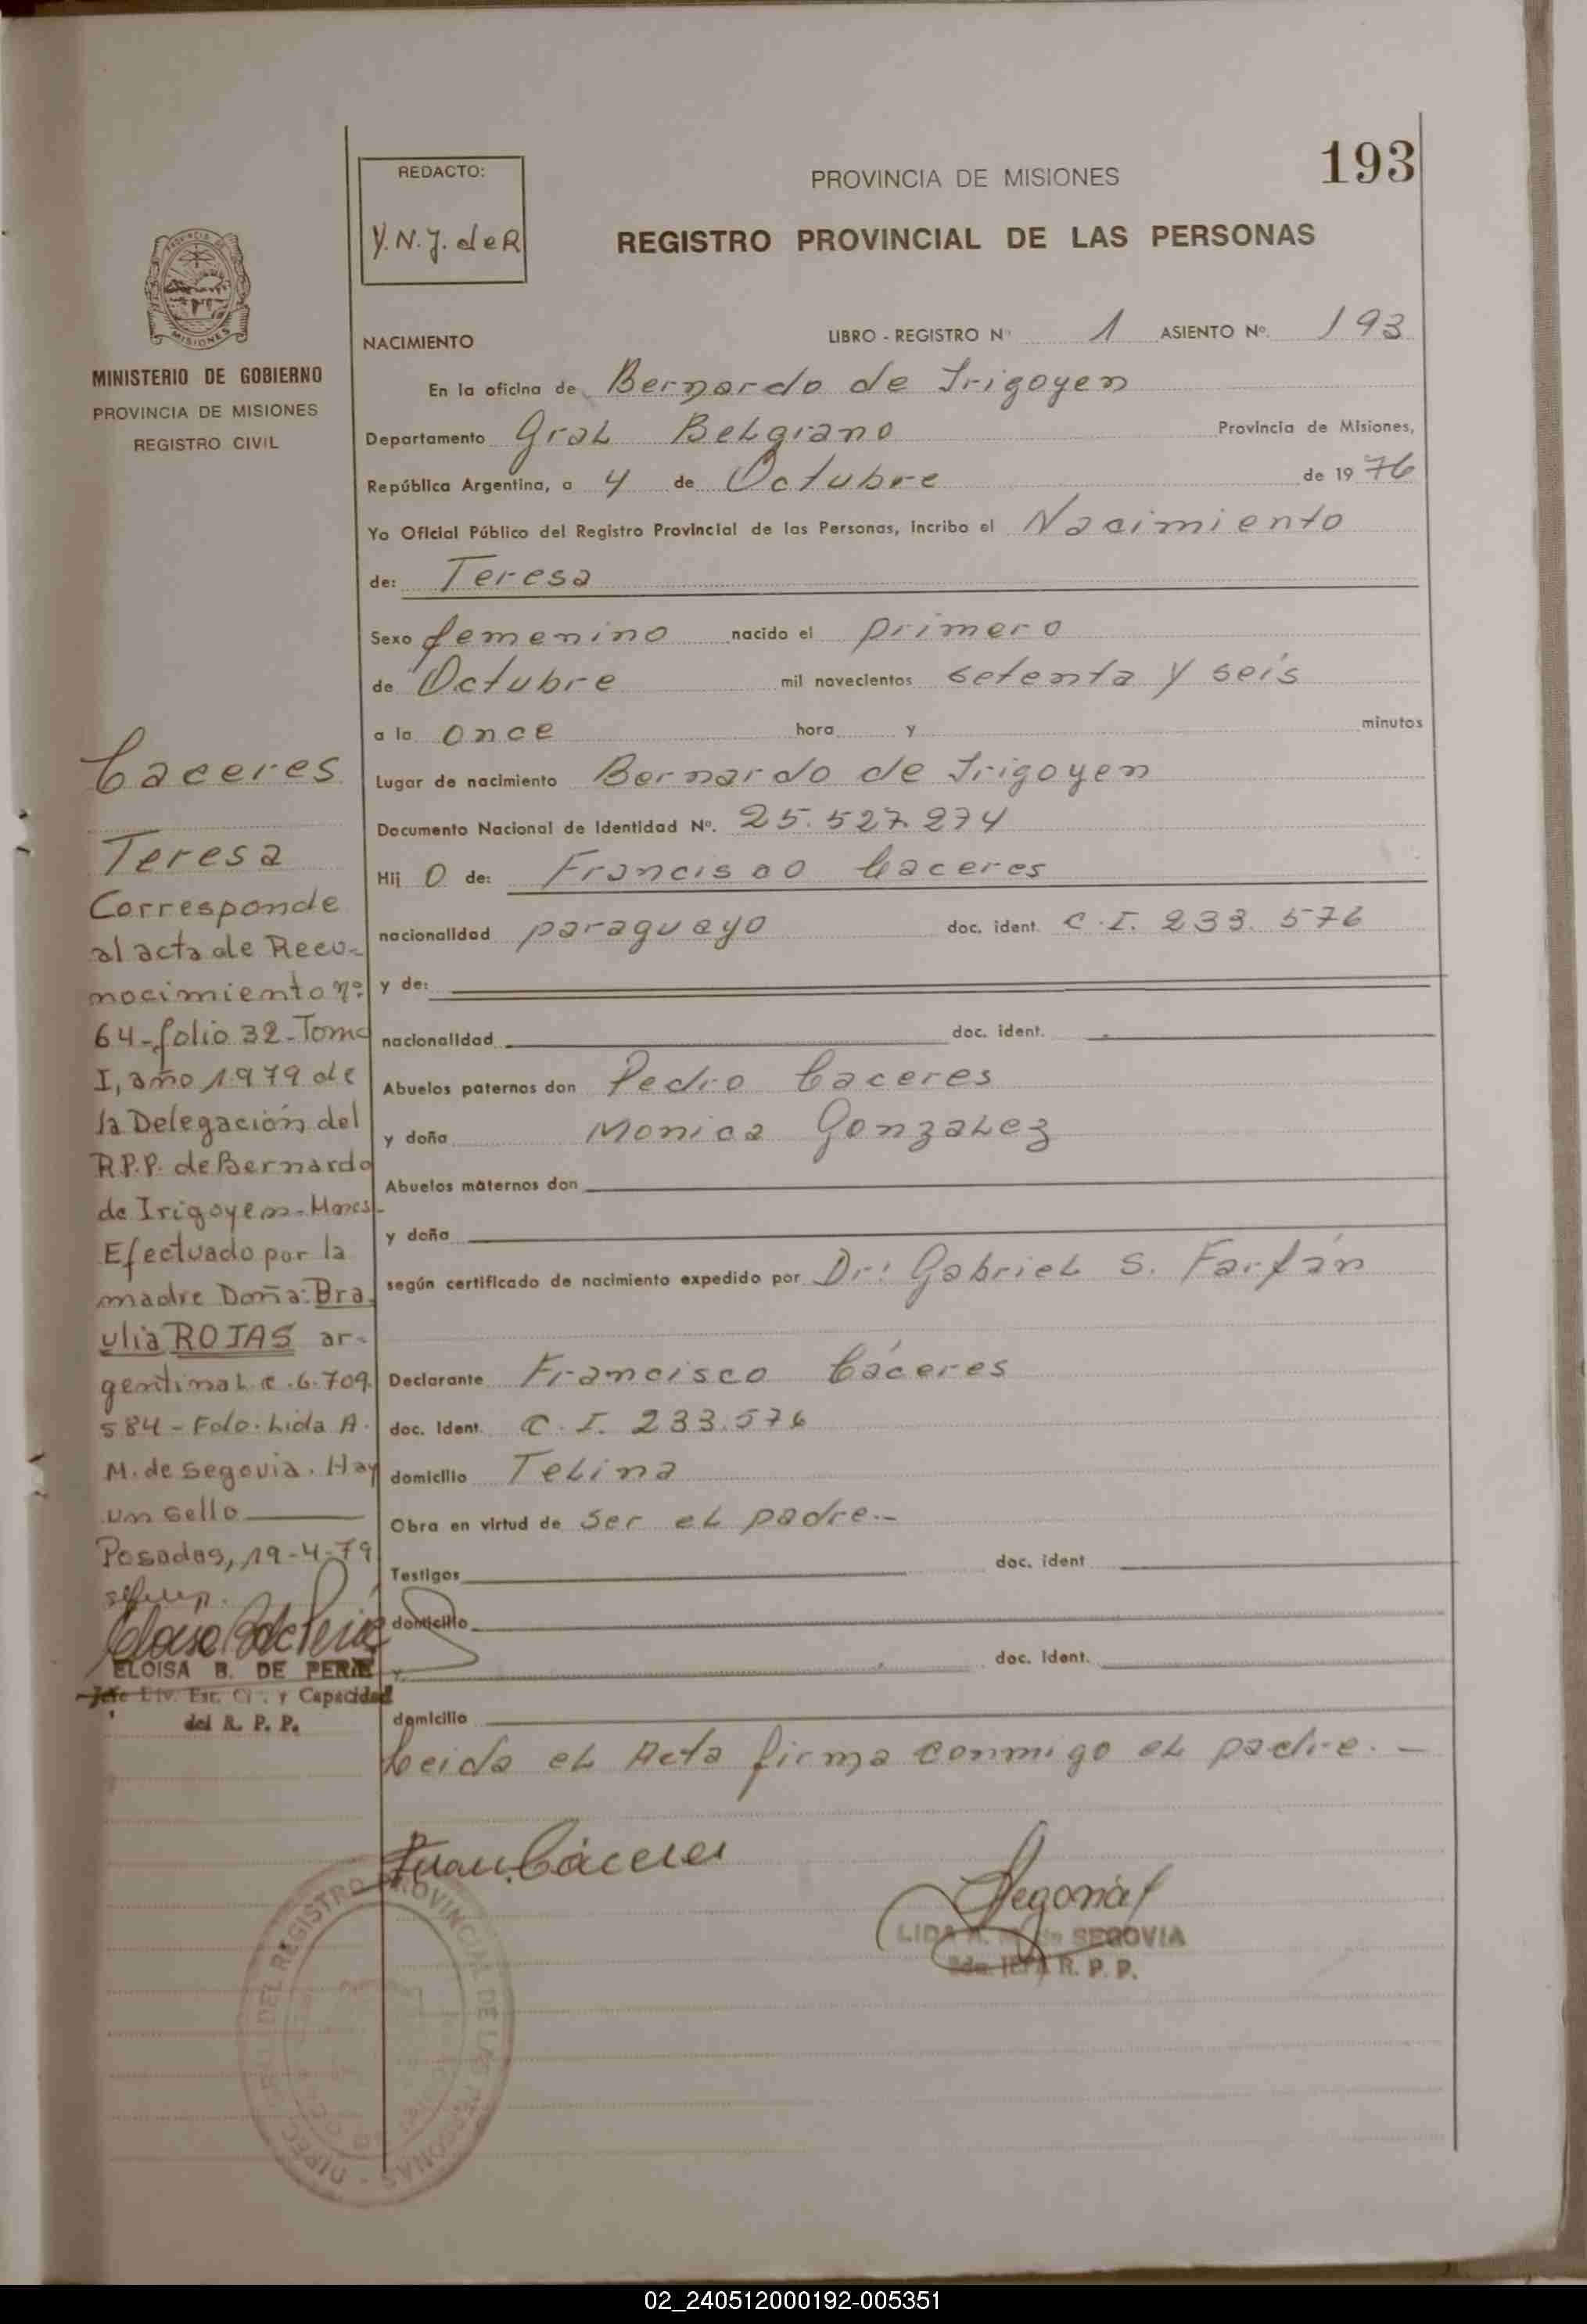 193
REDACTO:
Y.N.J. de R
PROVINCIA DE MISIONES
REGISTRO PROVINCIAL DE LAS PERSONAS
MISIONES
MINISTERIO DE GOBIERNO
PROVINCIA DE MISIONES
REGISTRO CIVIL
NACIMIENTO LIBRO - REGISTRO Nº 1 ASIENTO Nº. 193
En la oficina de Bernardo de Irigoyen
Departamento Gral Belgrano Provincia de Misiones,
República Argentina, a 4 de Octubre de 1976
Yo Oficial Público del Registro Provincial de las Personas, incribo el Nacimiento
de: Teresa
Sexo femenino nacido el primero
de Octubre mil novecientos setenta y seis
a la once hora y minutos
Lugar de nacimiento Bernardo de Irigoyen
Documento Nacional de Identidad Nº. 25.527.274
Hij O de: Francisco Caceres
nacionalidad paraguayo doc. ident. C.I. 233.576
y de:
nacionalidad doc. ident.
Abuelos paternos don Pedro Caceres
y doña Monica Gonzalez
Abuelos maternos don
y doña
según certificado de nacimiento expedido por Dr: Gabriel S. Farfán
Declarante Francisco Cáceres
doc. Ident. C.I. 233.576
domicilio Telina
Obra en virtud de ser el padre.-
Testigos doc. ident
domicilio
y doc. Ident.
domicilio
Leida el Acta firma conmigo el padre.-
Caceres
Teresa
Corresponde
al acta de Reco-
nocimiento nº
64-folio 32-Tomo
I, año 1979 de
la Delegación del
R.P.P. de Bernardo
de Irigoyen-Mnes-
Efectuado por la
madre Doña: Bra
ulia ROJAS ar-
gentina L.C. 6.709.
584 - Fdo. Lida A.
M. de Segovia. Hay
un sello
Posadas, 19-4-79
ELOISA B. DE PERIE
Jefe Div. Est. Ci. y Capacidad
del R. P. P.
Juan Cáceres
Segovia
LIDA A. M. de SEGOVIA
R. P. P.
DEL REGISTRO PROVINCIAL DE LAS PERSONAS
02_240512000192-005351